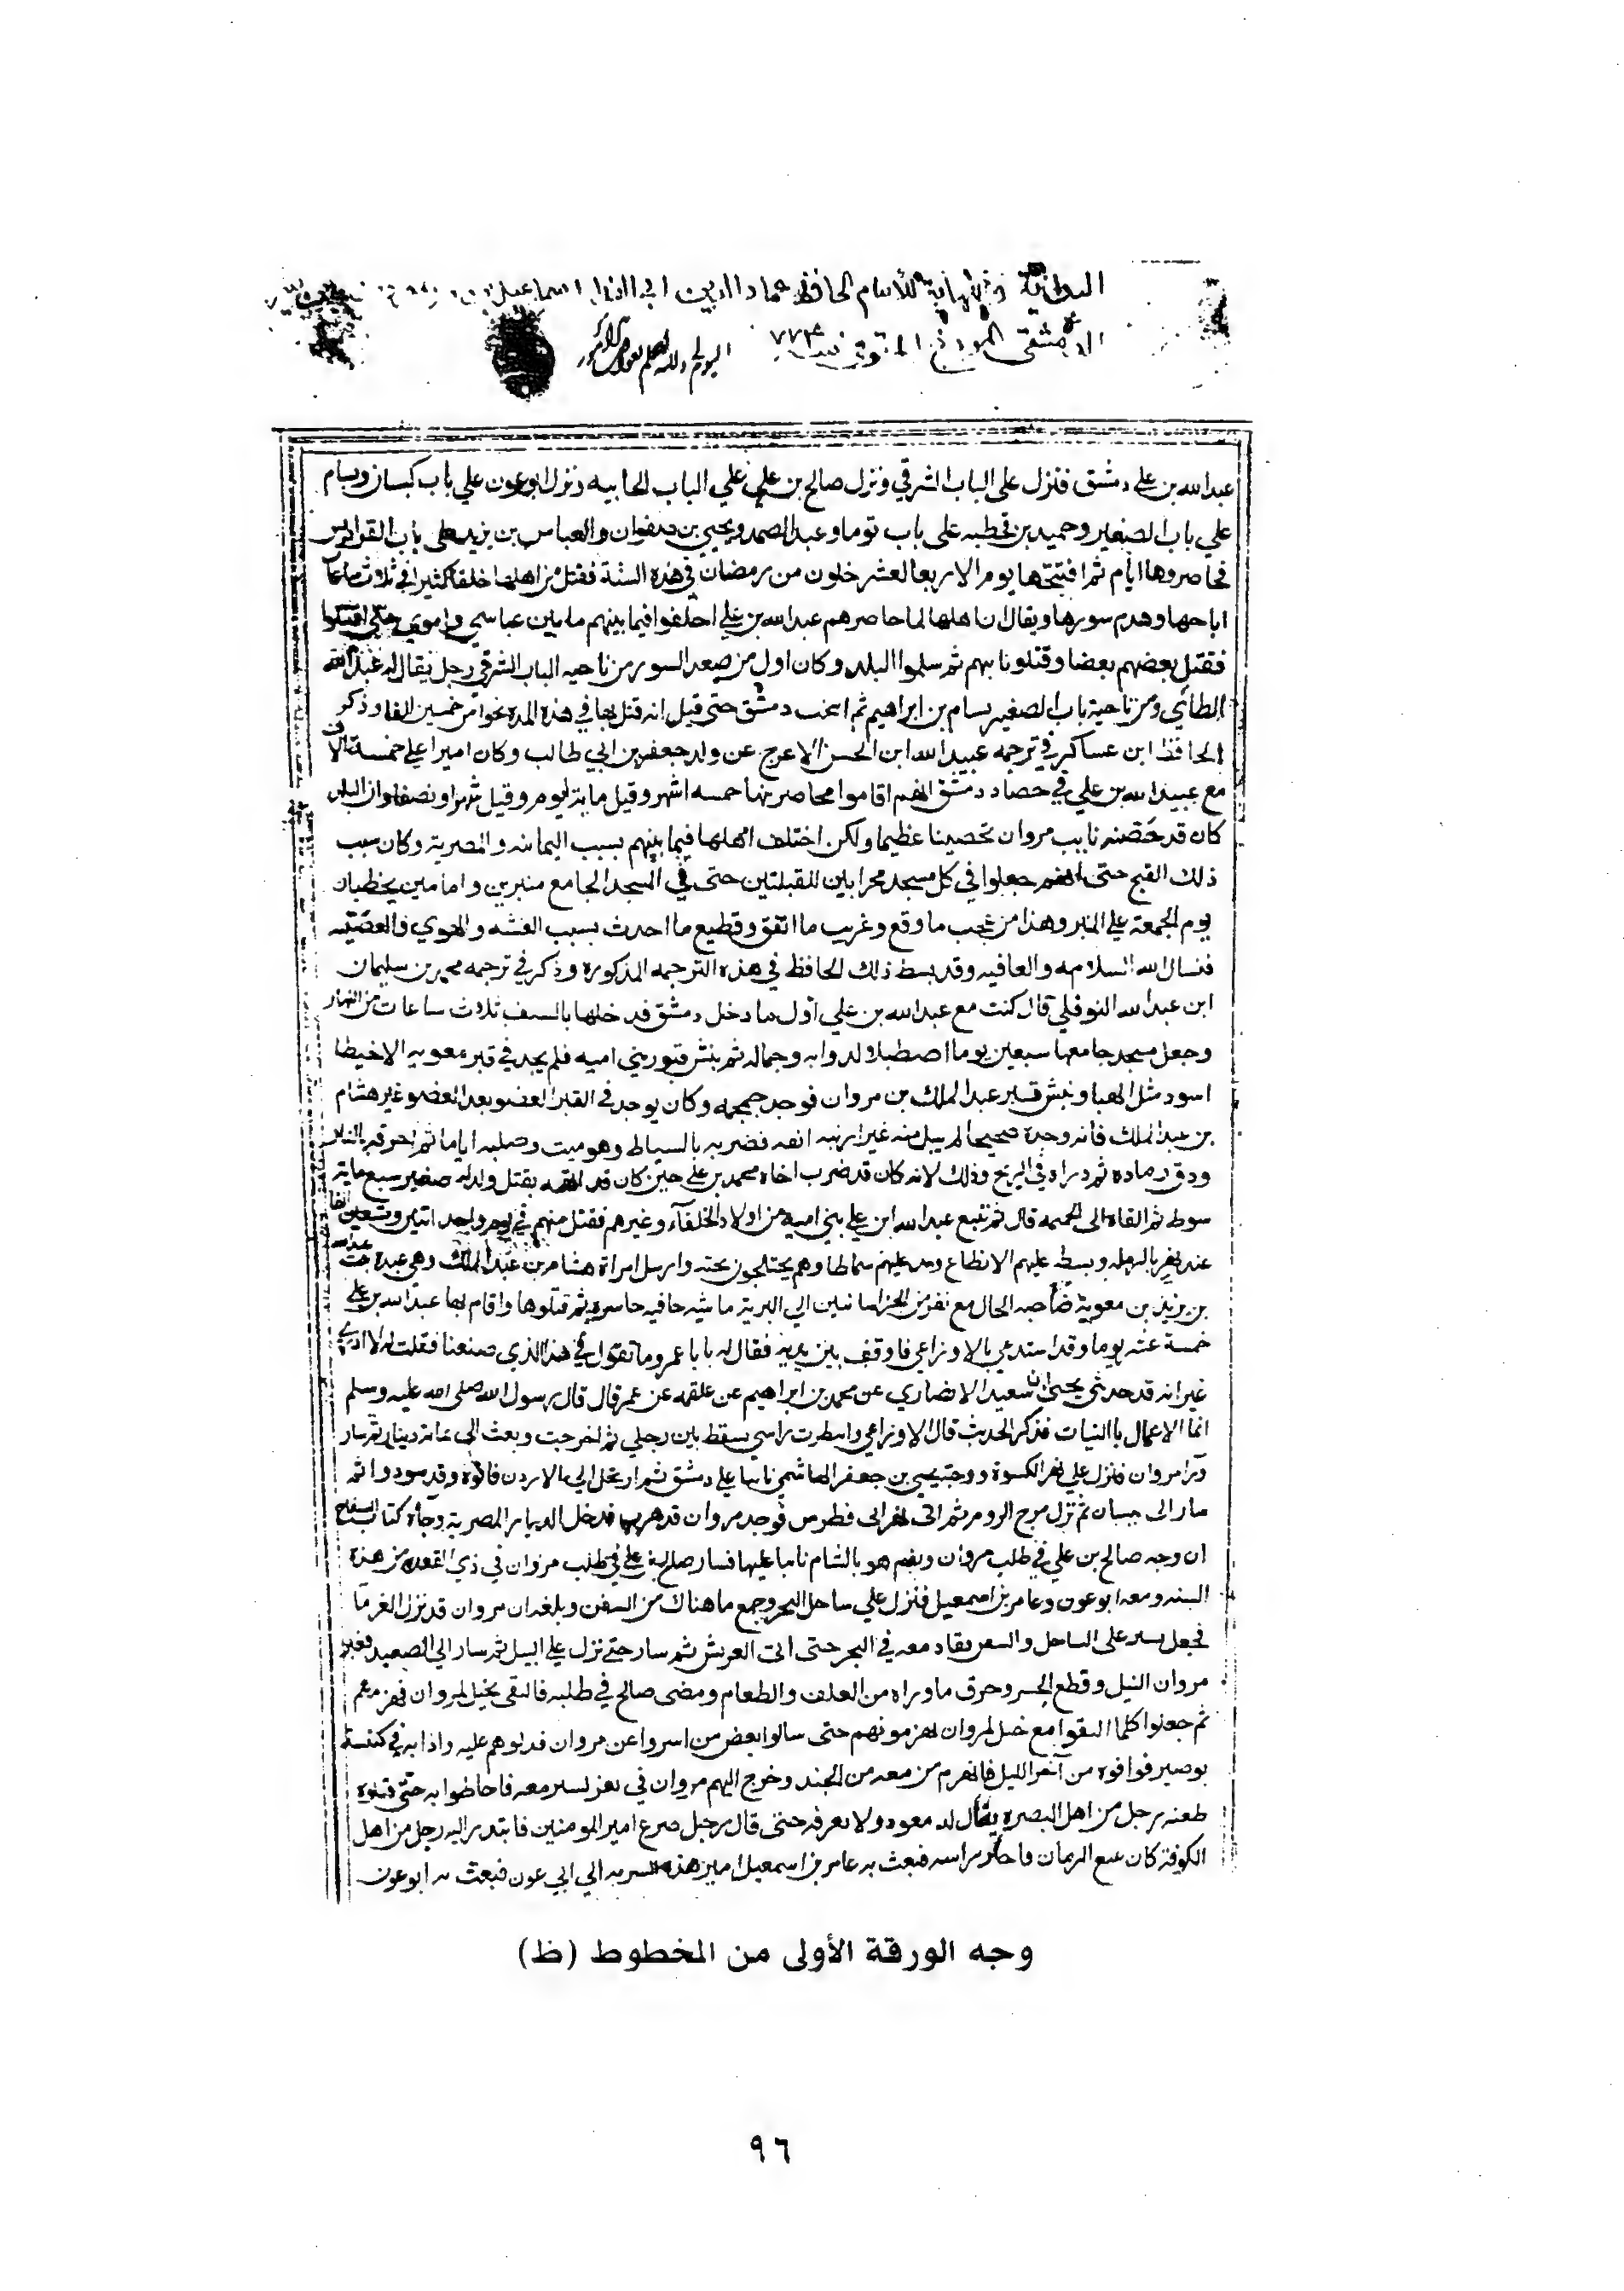 البداية والنهاية للامام الحافظ عماد الدين ابي الفدا اسماعيل
الدمشقي المورخ المتوفى سنة ٧٧٤
عبدالله بن علي دمشق فنزل على الباب الشرقي ونزل صالح بن علي علي الباب الجابيه ونزل ابو عون علي باب كيسان وبسام
علي باب الصغير وحميد بن قحطبه على باب توما وعبد الصمد ويحيي بن صفوان والعباس بن يزيد على باب الفراديس
فحاصروها ايام ثم افتتحها يوم الاربعا لعشر خلون من رمضان في هذه السنة فقتل من اهلها خلقا كثيرا في ثلاث ساعات
اباحها وهدم سورها ويقال ان اهلها لما حاصرهم عبدالله بن علي اختلفوا فيما بينهم ما بين عباسي واموي حتى اقتتلوا
فقتل بعضهم بعضا وقتلوا نايبهم ثم سلموا البلد وكان اول من صعد السور من ناحيه الباب الشرقي رجل يقال له عبدالله
الطائي ومن ناحية باب الصغير بسام بن ابراهيم ثم ابيحت دمشق حتى قيل انه قتل بها في هذه المده نحوا من خمسين الفا وذكر
الحافظ ابن عساكر في ترجمه عبيد الله ابن الحسن الاعرج عن ولد جعفر بن ابي طالب وكان اميرا على خمسة الاف
مع عبيد الله بن علي في حصاد دمشق انهم اقاموا محاصرينها خمسه اشهر وقيل ماية يوم وقيل شهرا ونصفا وان البلد
كان قد حصنه نايب مروان تحصينا عظيما ولكن اختلف اهلها فيما بينهم بسبب اليمانيه والمضرية وكان سبب
ذلك الفتح حتى انهم جعلوا في كل مسجد محرابين للقبلتين حتى في المسجد الجامع منبرين وامامين يخطبان
يوم الجمعة على المنبر وهذا من عجب ما وقع وغريب ما اتفق وفظيع ما احدث بسبب الفتنه والهوي والعصبيه
فنسال الله السلامه والعافيه وقد بسط ذلك الحافظ في هذه الترجمه المذكورة وذكر في ترجمه محمد بن سليمان
ابن عبدالله النوفلي قال كنت مع عبدالله بن علي اول ما دخل دمشق فدخلها بالسيف ثلاث ساعات من النهار
وجعل مسجد جامعها سبعين يوما اصطبلا لدوابه وجماله ثم نبش قبور بني اميه فلم يجد في قبر معويه الا خيطا
اسود مثل الهبا ونبش قبر عبد الملك بن مروان فوجد جمجمه وكان يوجد في القبر العضو بعد العضو غير هشام
بن عبد الملك فانه وجده صحيحا لم يبل منه غير ارنبه انفه فضربه بالسياط وهو ميت وصلبه اياما ثم احرقه بالنار
ودق رماده ثم ذراه في الريح وذلك لانه كان قد ضرب اخاه محمد بن علي حين كان قد اتهمه بقتل ولد له صغير سبع ماية
سوط ثم القاه الى الحميمه قال ثم تتبع عبدالله ابن علي بني اميه من اولاد الخلفآء وغيرهم فقتل منهم في يوم واحد اثنين وتسعين الفا
عند نهر بالرمله وبسط عليهم الانطاع ومد عليهم سماطا وهم يختلجون تحته وارسل امراة هشام بن عبد الملك وهي عبدة بنت عبدالله
بن يزيد بن معوية صاحبه الخال مع نفر من الخراسانيين الي البرية ماشيه حافيه حاسره ثم قتلوها واقام بها عبدالله بن علي
خمسة عشر يوما وقد استدعي بالاوزاعي فاوقف بين يديه فقال له يا با عمرو ما تقول في هذا الذي صنعنا فقلت له لا ادري
غير انه قد حدثني يحيي ابن سعيد الانصاري عن محمد بن ابراهيم عن علقمه عن عمر قال قال رسول الله صلى الله عليه وسلم
انما الاعمال باالنيات فذكر الحديث قال الاوزاعي وانتظرت راسي يسقط بين رجلي ثم اخرجت وبعث الى بماية دينار ثم سار
ورا مروان فنزل علي نهر الكسوة ووجه يحيي بن جعفر الهاشمي نايبا علي دمشق ثم ارتحل الي الاردن فاتوه وقد سودوا ثم
سار الى بيسان ثم نزل مرج الروم ثم اتى نهر ابي فطرس فوجد مروان قد هرب فدخل الديار المصرية وجآه كتاب السفاح
ان وجه صالح بن علي في طلب مروان ويقم هو بالشام نايبا عليها فسار صالح بن علي في طلب مروان في ذي القعده من هذه
السنه ومعه ابو عون وعامر بن اسمعيل فنزل علي ساحل البحر وجمع ما هناك من السفن وبلغه ان مروان قد نزل الفرما
فجعل يسير على الساحل والسفن تقاد معه في البحر حتى اتى العريش ثم سار حتى نزل علي النيل ثم سار الي الصعيد فعبر
مروان النيل وقطع الجسر وحرق ما وراه من العلف والطعام ومضى صالح في طلبه فالتقى بخيل لمروان فهزمهم
ثم جعلوا كلما التقوا مع خيل لمروان يهزمونهم حتى سالوا بعض من اسروا عن مروان فدلوهم عليه واذا به في كنيسة
بوصير فوافوه من آخر الليل فانهزم من معه من الجند وخرج اليهم مروان في نفر يسير معه فاحاطوا به حتى قتلوه
طعنه رجل من اهل البصره يقال له معود ولا يعرفه حتى قال رجل صرع امير المومنين فابتدر اليه رجل من اهل
الكوفة كان يبيع الرمان فاحتز راسه فبعث به عامر بن اسمعيل امير هذه السريه الي ابي عون فبعث به ابو عون
وجه الورقة الأولى من المخطوط (ظ)
٩٦